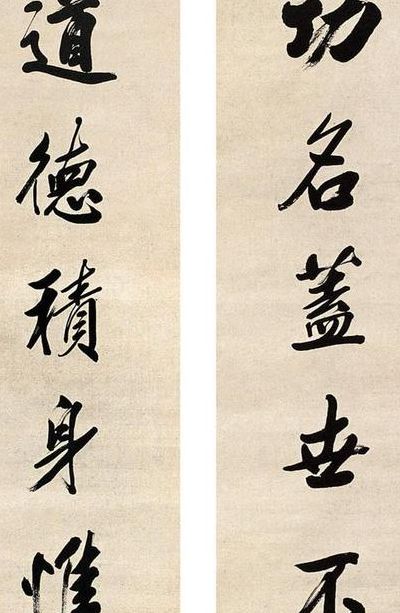 功名蓋世不
道德積身惟